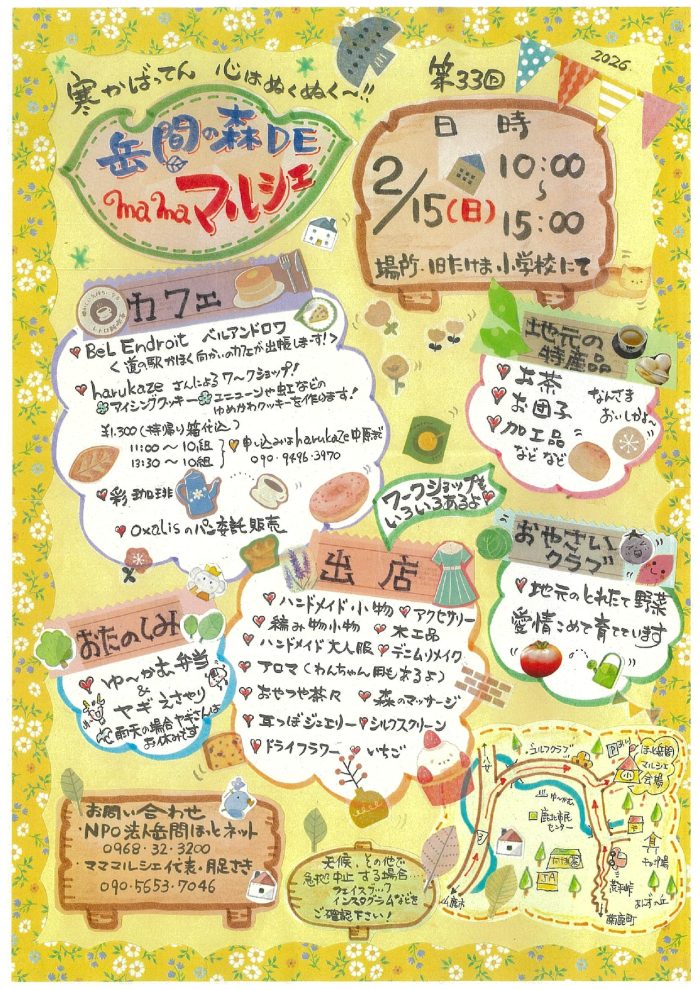 寒かばってん 心はぬくぬく〜!!
岳間の森DE
mamaマルシェ
第33回
2026.
日時
2/15(日)
10:00
〜
15:00
場所・旧たけま小学校にて
カフェ
BeL Endroit ベルアンドロワ
く道の駅かほく向かいのカフェが出張します!>
harukazeさんによるワークショップ!
アイシングクッキー ユニコーンや虹などの
ゆめかわクッキーを作ります!
¥1,300(持帰り箱代込)
11:00〜10組
13:30〜10組
申し込みはharukaze中原まで
090.9496.3970
彩珈琲
oxalisのパン委託販売
地元の
特産品
お茶
お団子
加工品
など など
なんさま
おいしかよ〜
ワークショップも
いろいろあるよ
おやさい
クラブ
地元のとれたて野菜
愛情こめて育てています
出店
ハンドメイド小物 アクセサリー
編み物小物 木工品
ハンドメイド大人服 デニムリメイク
アロマ(わんちゃん用もあるよ)
おやつや茶々 森のマッサージ
耳つぼジュエリー シルクスクリーン
ドライフラワー いちご
おたのしみ
ゆ〜かむ弁当
&
ヤギえさやり
雨天の場合ヤギさんは
お休みです
お問い合わせ
・NPO法人岳間ほっとネット
0968・32・3200
・マママルシェ代表・月足さき
090-5653-7046
天候、その他で
急きょ中止する場合…
フェイスブック
インスタグラムなどを
ご確認下さい!
シルククラブ
ほっと岳間
マルシェ
会場
ゆ〜かむ
鹿北市民
センター
JA
キャンプ場
山鹿市